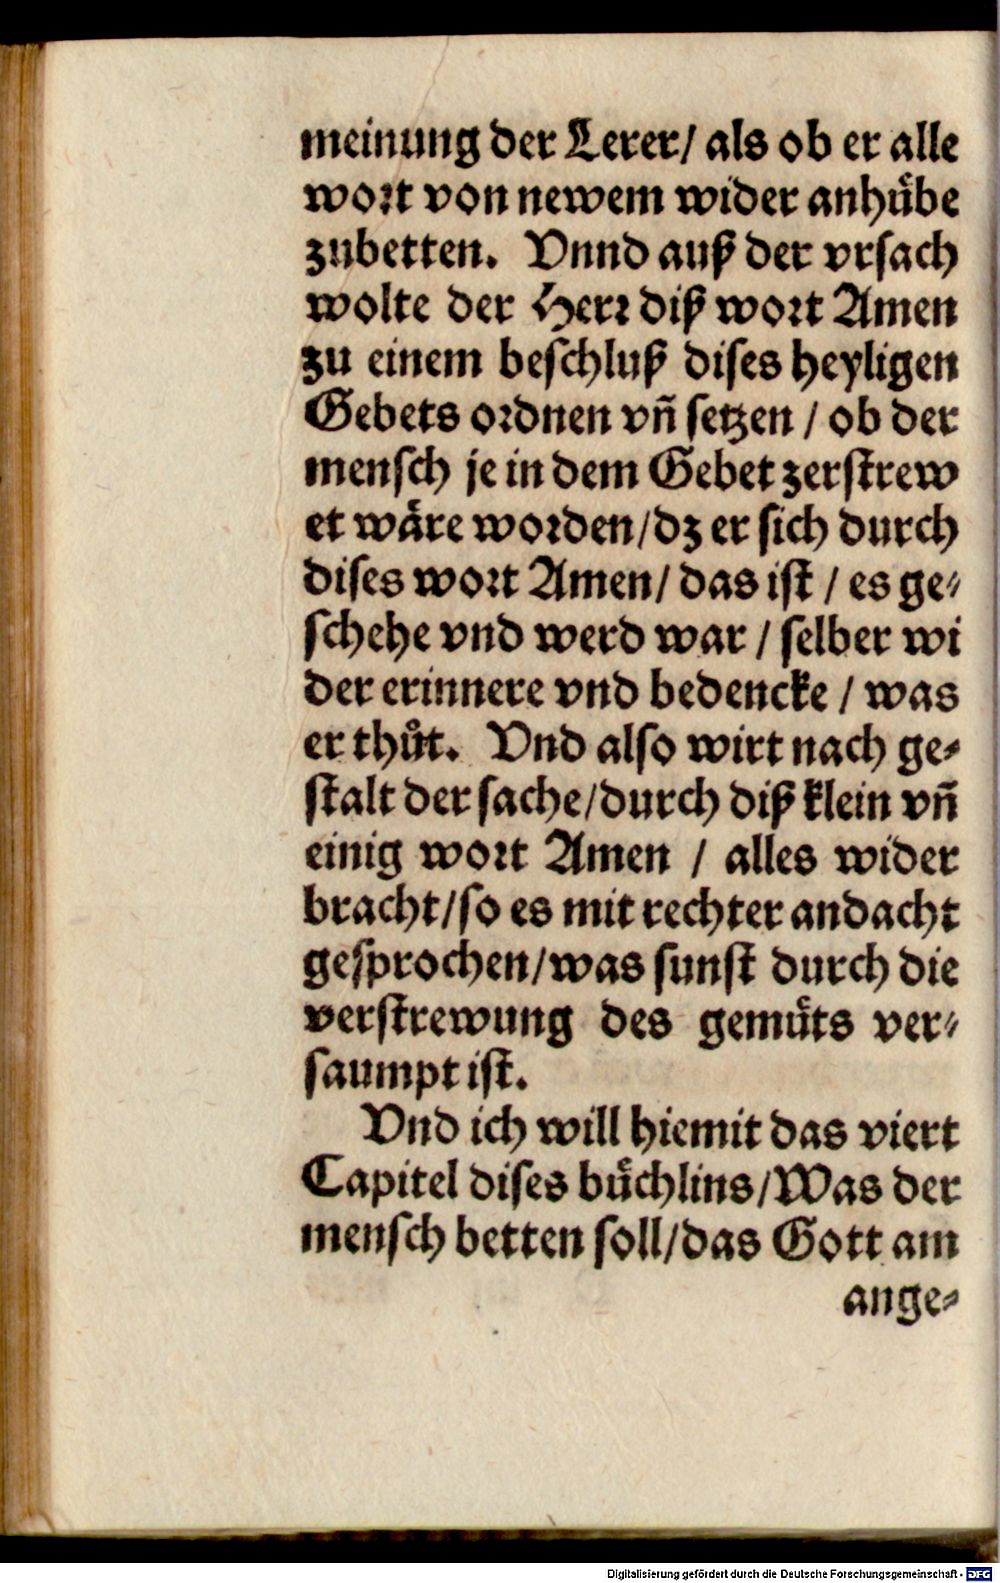 meinung der Lerer/ als ob er alle
wort von newem wider anhuͤbe
zubetten. Vnnd auß der vrsach
wolte der Herr diß wort Amen
zu einem beschluß dises heyligen
Gebets ordnen vñ setzen / ob der
mensch je in dem Gebet zerstrew
et waͤre worden/dz er sich durch
dises wort Amen/ das ist / es ge⸗
schehe vnd werd war / selber wi
der erinnere vnd bedencke / was
er thuͦt. Vnd also wirt nach ge⸗
stalt der sache/durch diß klein vñ
einig wort Amen / alles wider
bracht/so es mit rechter andacht
gesprochen/was sunst durch die
verstrewung des gemuͤts ver⸗
saumpt ist.
Vnd ich will hiemit das viert
Capitel dises buͤchlins/Was der
mensch betten soll/das Gott am
ange⸗
Digitalisierung gefördert durch die Deutsche Forschungsgemeinschaft - DFG